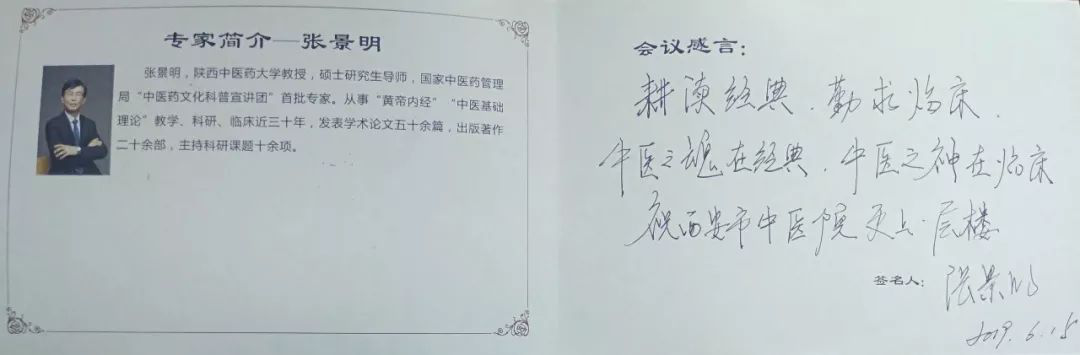 专家简介—张景明
张景明，陕西中医药大学教授，硕士研究生导师，国家中医药管理
局“中医药文化科普宣讲团”首批专家。从事“黄帝内经”“中医基础
理论”教学、科研、临床近三十年，发表学术论文五十余篇，出版著作
二十余部，主持科研课题十余项。
会议感言：
耕读经典，勤求临床，
中医之魂在经典，中医之神在临床
祝西安市中医院更上一层楼
签名人：张景明
2019.6.15